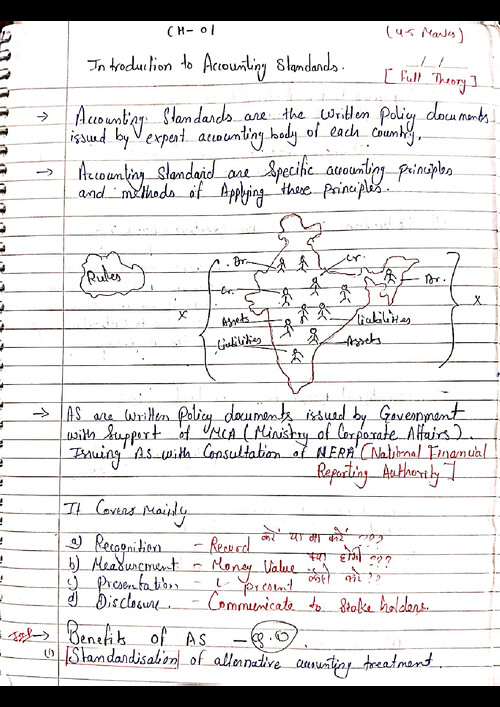 CH-01
(4-5 Marks)
Introduction to Accounting Standards.
[Full Theory]
→ Accounting Standards are the written policy documents
issued by expert accounting body of each country.
→ Accounting Standard are Specific accounting principles
and methods of Applying these principles.
Rules
Dr.
Cr.
Cr.
Dr.
Assets
Liabilities
Liabilities
Assets
x
x
→ AS are written policy documents issued by Government
with Support of MCA (Ministry of Corporate Affairs).
Issuing AS with Consultation of NFRA [National Financial
Reporting Authority]
It Covers Mainly
a) Recognition - Record करें या ना करें ???
b) Measurment - Money Value क्या होगी ???
c) Presentation - present कहाँ करे ??
d) Disclosure. - Communicate to Stake holders.
→ Benefits of AS -
(i) Standardisation of alternative accounting treatment.